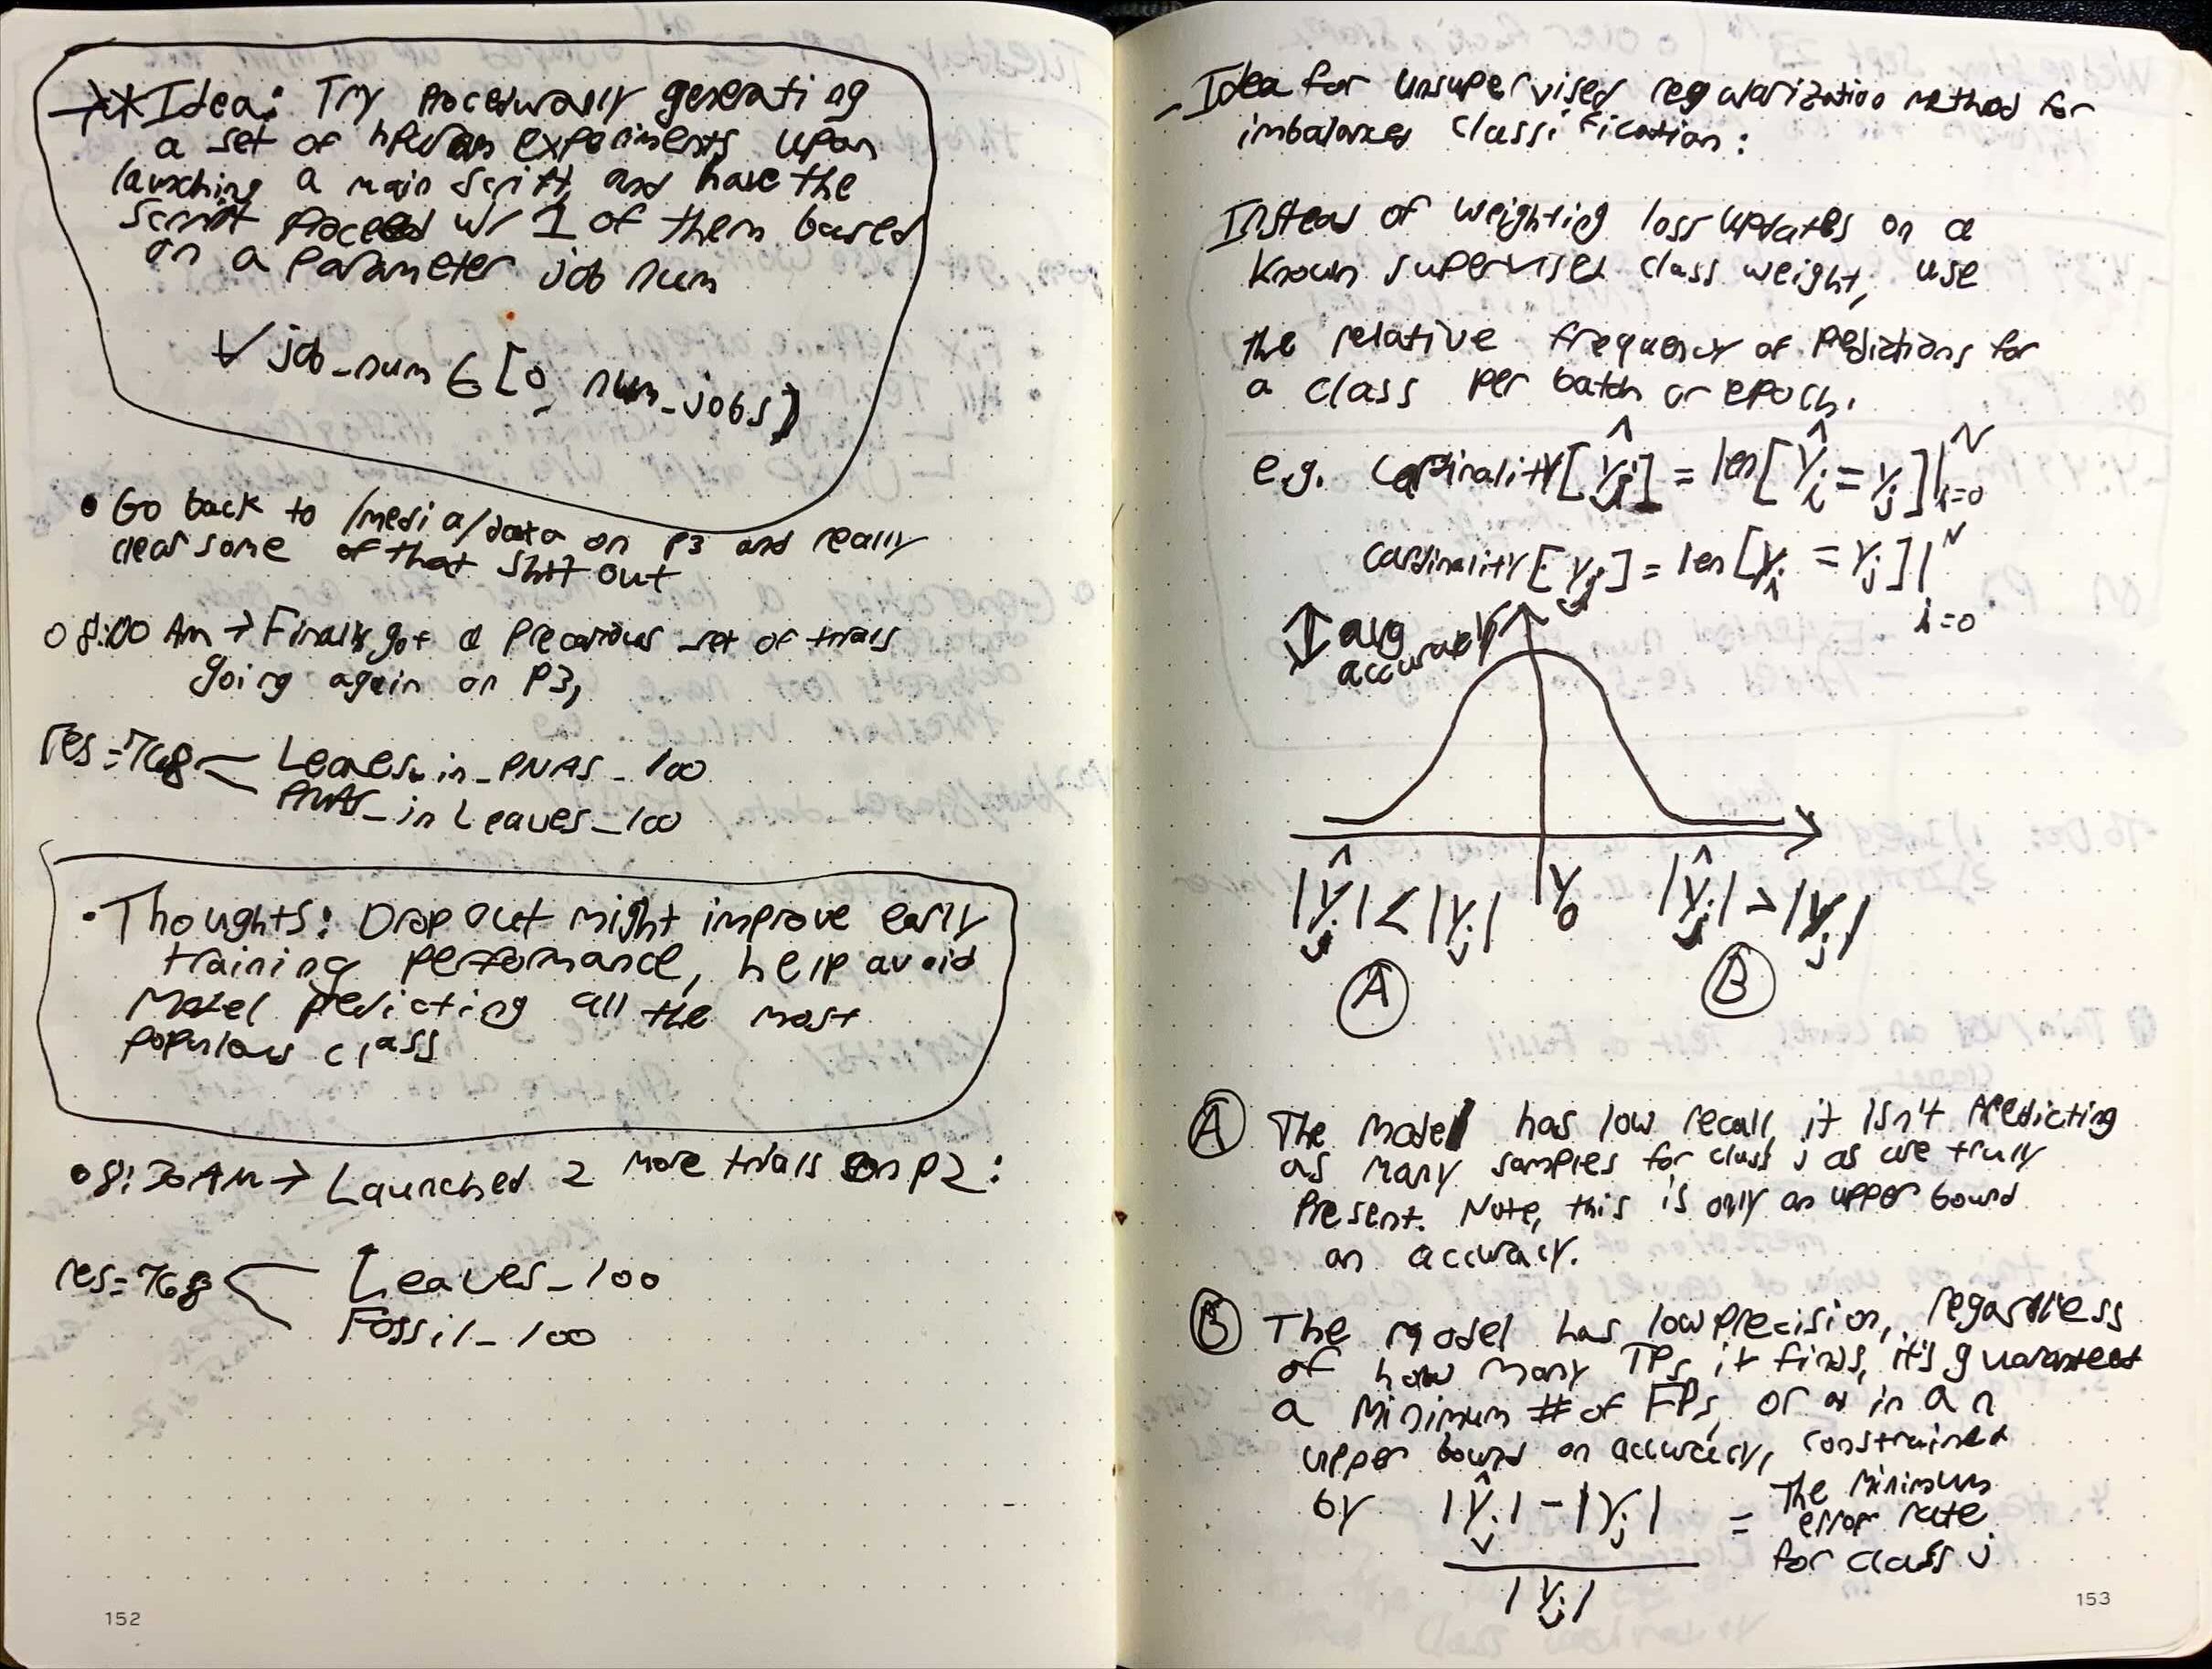 →* Idea: Try procedurally generating
a set of hparam experiments upon
launching a main script, and have the
script proceed w/ 1 of them based
on a parameter job num
↓ job_num ∈ [0, num_jobs)
• Go back to /media/data on P3 and really
clear some of that shit out
o 8:00 AM → Finally got a precarious set of trials
going again on P3,
res=768 Leaves_in_PNAS_100
PNAS_in Leaves_100
• Thoughts: Drop out might improve early
training performance, help avoid
model predicting all the most
populous class
• 8:30 AM → Launched 2 more trials on P2:
res=768 Leaves_100
Fossil_100
152
- Idea for unsupervised regularization method for
imbalanced classification:
Instead of weighting loss updates on a
known supervised class weight, use
the relative frequency of predictions for
a class per batch or epoch.
e.g. Cardinality[ŷj] = len[ŷi = yj]|N i=0
Cardinality[yj] = len[yi = yj]|N i=0
↕ avg
accuracy
|ŷj| < |yj| |Y0 |ŷj| > |yj|
A B
A The model has low recall, it isn't predicting
as many samples for class j as are truly
present. Note, this is only an upper bound
on accuracy.
B The model has low precision, regardless
of how many TPs it finds, it's guaranteed
a minimum # of FPs, or in an
upper bound on accuracy, constrained
by |ŷj| - |yj| / |yj| = The minimum
error rate
for class j
153